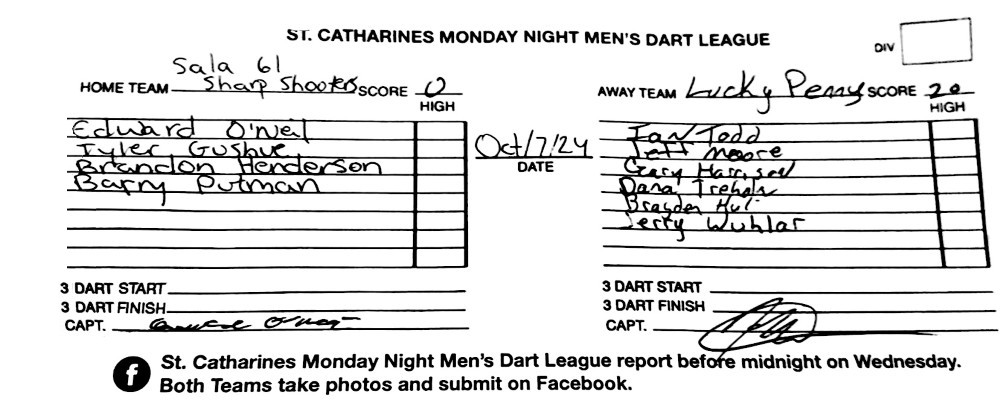 ST. CATHARINES MONDAY NIGHT MEN'S DART LEAGUE
DIV
Sala 61
HOME TEAM Sharp Shooters SCORE 0
HIGH
AWAY TEAM Lucky Penny SCORE 20
HIGH
Edward O'Neil
Tyler Gushue
Brandon Henderson
Barry Putman
Oct/7/24
DATE
Ian Todd
Jeff Moore
Gary Harrison
Dana
Brayden
Jerry Wuhlar
3 DART START
3 DART FINISH
CAPT.
3 DART START
3 DART FINISH
CAPT.
f St. Catharines Monday Night Men's Dart League report before midnight on Wednesday.
Both Teams take photos and submit on Facebook.